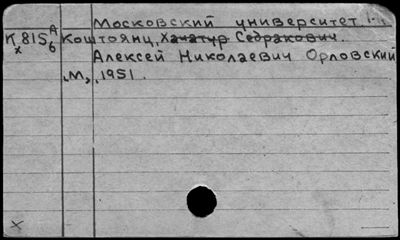 Московский университет 1.
К 815 А/6 Коштоянц, Хачатур Седракович.
х
Алексей Николаевич Орловский
.М., 1951.
х